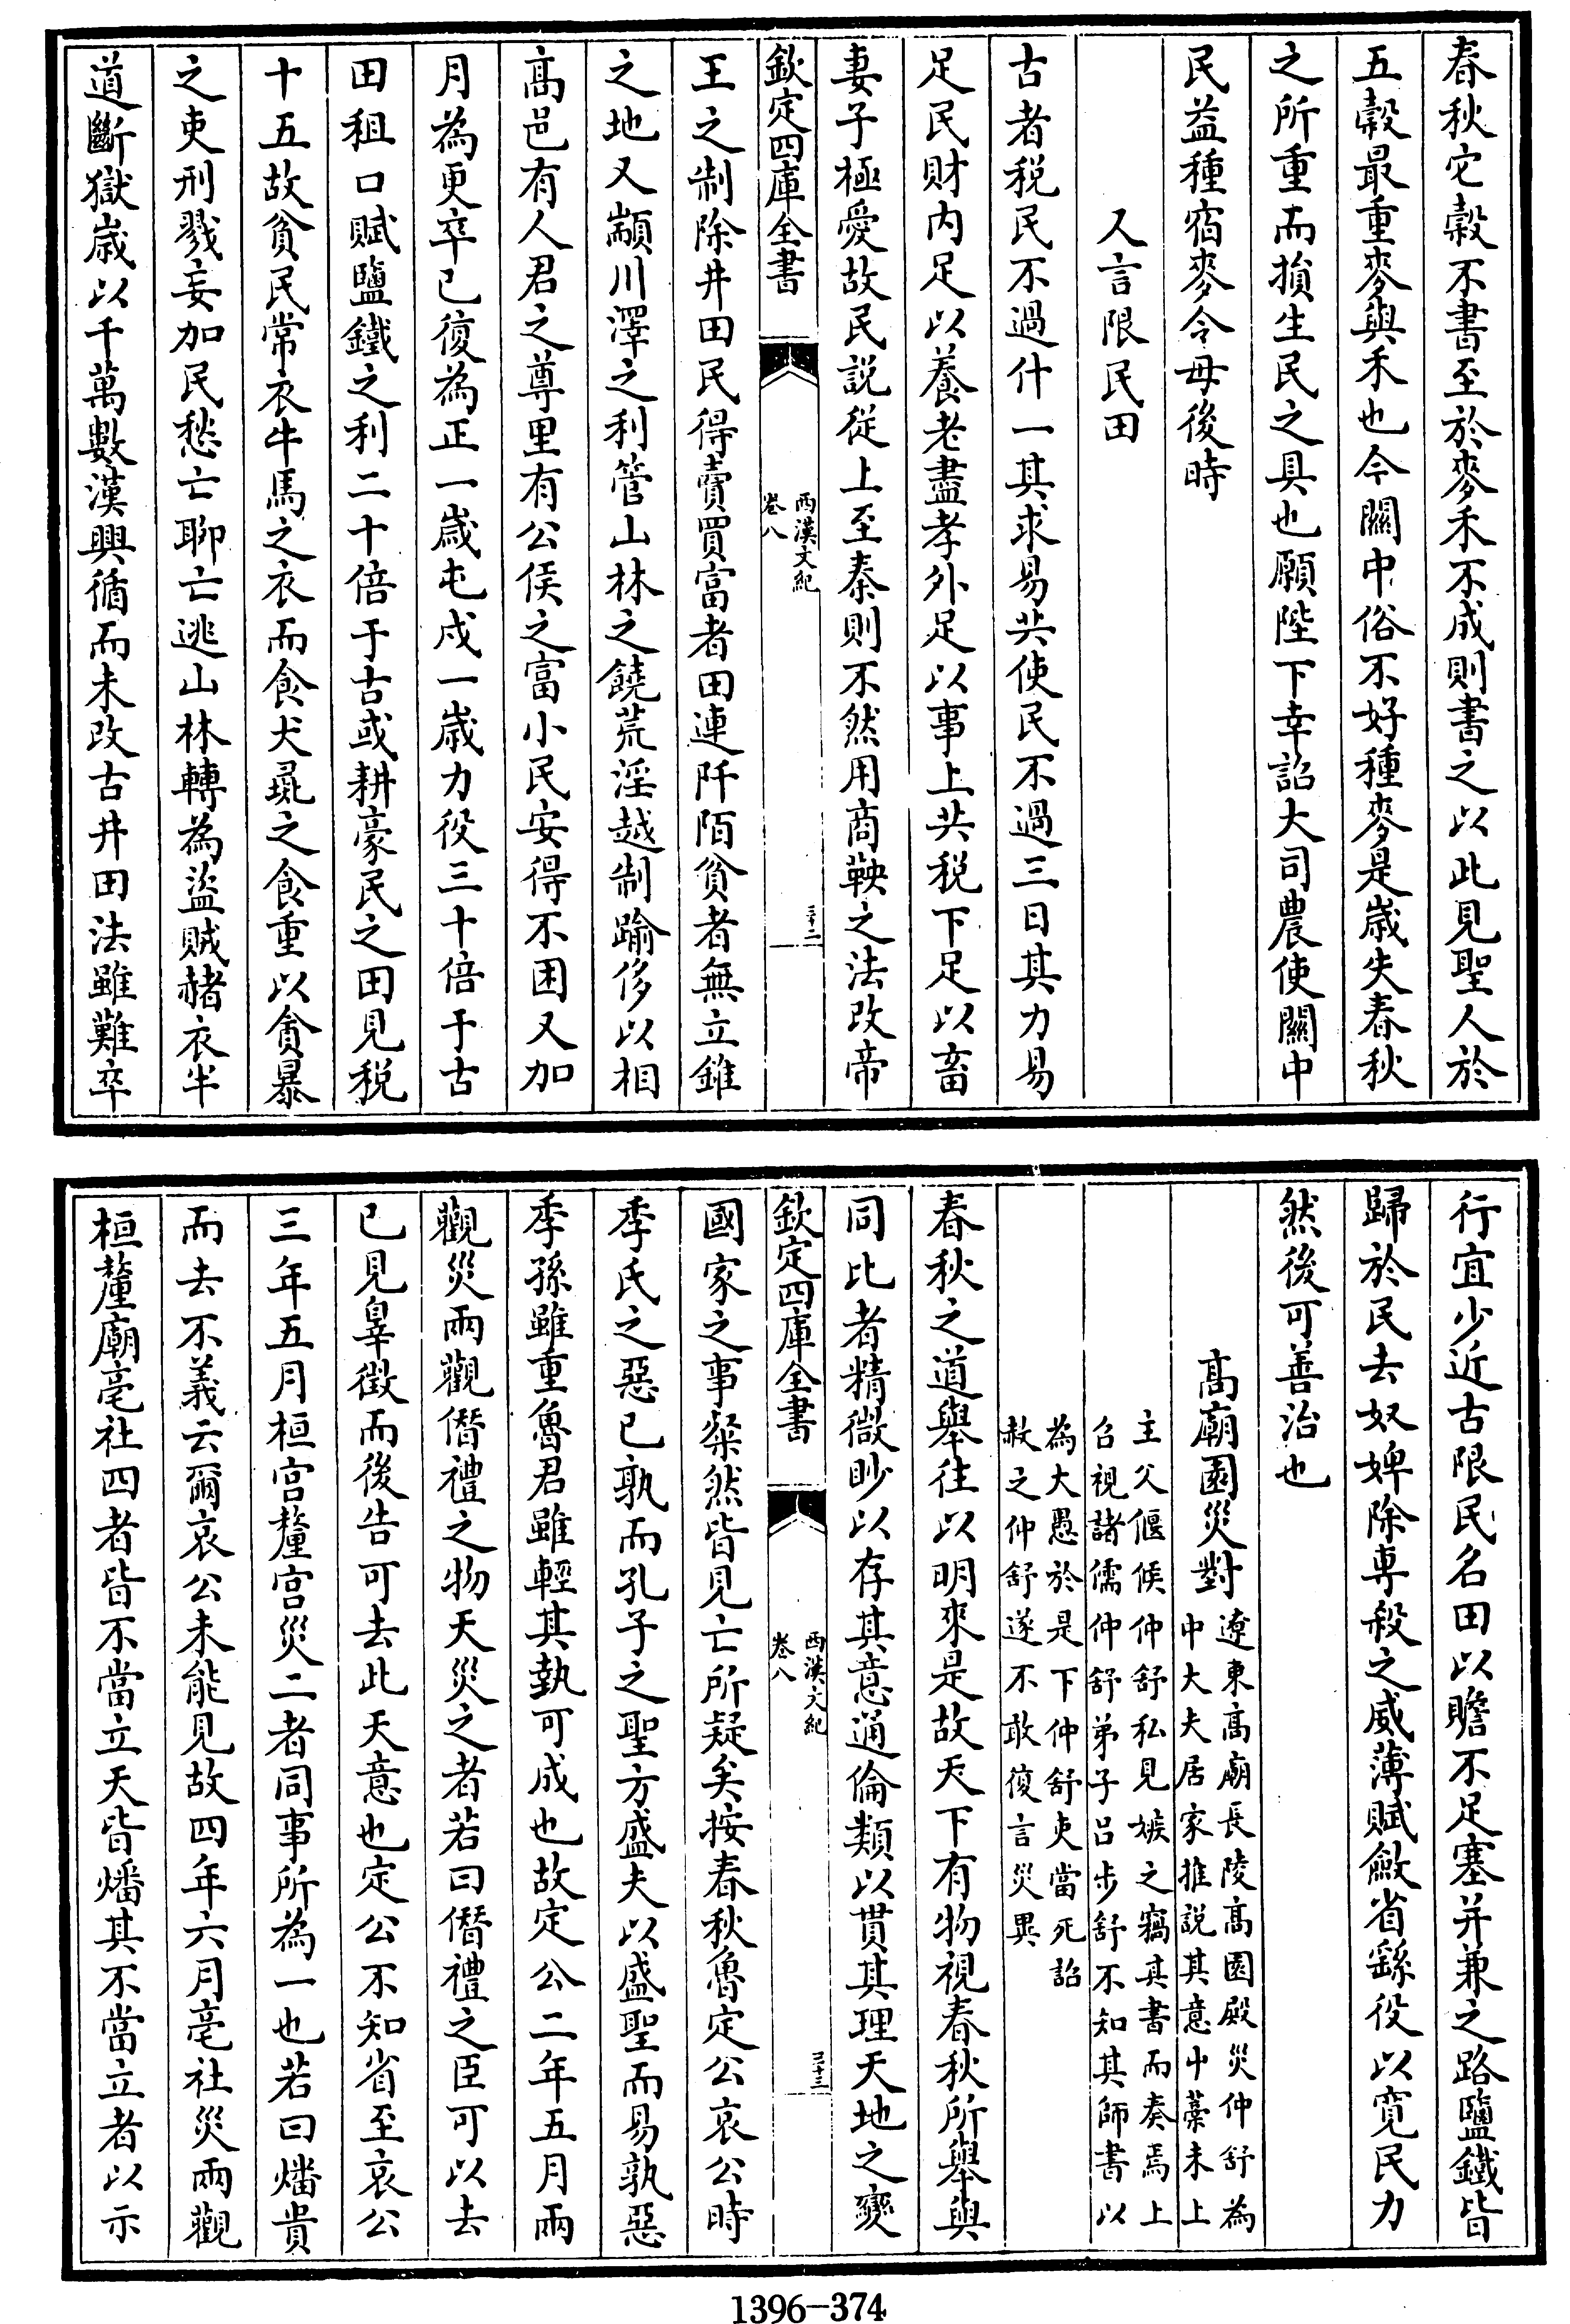 春秋它穀不書至於麥禾不成則書之以此見聖人於
五穀最重麥與禾也今關中俗不好種麥是歳失春秋
之所重而損生民之具也願陛下幸詔大司農使關中
民益種宿麥令毋後時
又言限民田
古者税民不過什一其求易共使民不過三日其力易
足民財内足以養老盡孝外足以事上共税下足以畜
妻子極愛故民説從上至秦則不然用商鞅之法改帝
欽定四庫全書
西漢文紀
卷八
三十二
王之制除井田民得賣買富者田連阡陌貧者無立錐
之地又顓川澤之利管山林之饒荒淫越制踰侈以相
髙邑有人君之尊里有公侯之富小民安得不困又加
月為更卒已復為正一歳屯戍一歳力役三十倍于古
田租口賦鹽鐵之利二十倍于古或耕豪民之田見税
十五故貧民常衣牛馬之衣而食犬彘之食重以貪暴
之吏刑戮妄加民愁亡聊亡逃山林轉為盜賊赭衣半
道斷獄歳以千萬數漢興循而未改古井田法雖難卒
行宜少近古限民名田以贍不足塞并兼之路鹽鐵皆
歸於民去奴婢除専殺之威薄賦斂省繇役以寛民力
然後可善治也
髙廟園災對
遼東髙廟長陵髙園殿災仲舒為
中大夫居家推説其意屮藁未上
主父偃候仲舒私見嫉之竊其書而奏焉上
召視諸儒仲舒弟子吕步舒不知其師書以
為大愚於是下仲舒吏當死詔
赦之仲舒遂不敢復言災異
春秋之道舉往以明來是故天下有物視春秋所舉與
同比者精微眇以存其意通倫類以貫其理天地之變
欽定四庫全書
西漢文紀
卷八
三十三
國家之事粲然皆見亡所疑矣按春秋魯定公哀公時
季氏之惡已孰而孔子之聖方盛夫以盛聖而易孰惡
季孫雖重魯君雖輕其埶可成也故定公二年五月兩
觀災兩觀僭禮之物天災之者若曰僭禮之臣可以去
已見辠徴而後告可去此天意也定公不知省至哀公
三年五月桓宫釐宫災二者同事所為一也若曰燔貴
而去不義云爾哀公未能見故四年六月亳社災兩觀
桓釐廟亳社四者皆不當立天皆燔其不當立者以示
1396-374